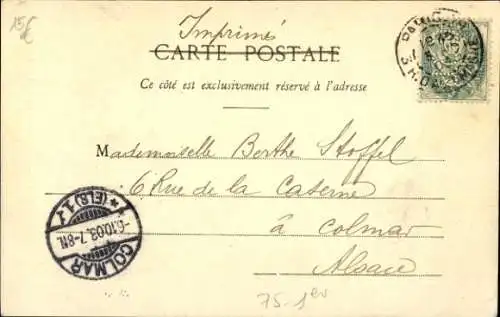 15
€
Imprimés
CARTE POSTALE
Ce côté est exclusivement réservé à l'adresse
Mademoiselle Berthe Stoffel
6 Rue de la Caserne
à Colmar
Alsace
COLMAR
6.10.03. 7-8N.
* (ELS) 1. *
75-1er